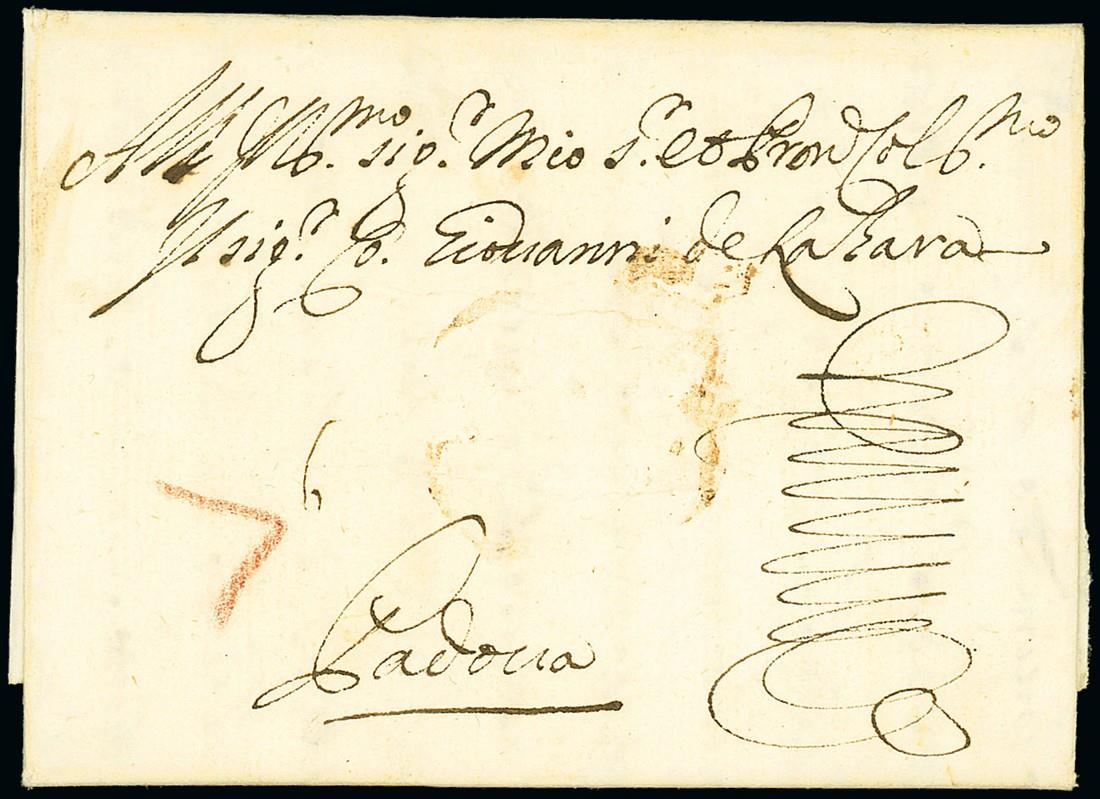 All Ill.mo sig.r Mio s.r et Pron Col.mo
Il sig.r C. Giouanni de Lazara
6
7
Padoua